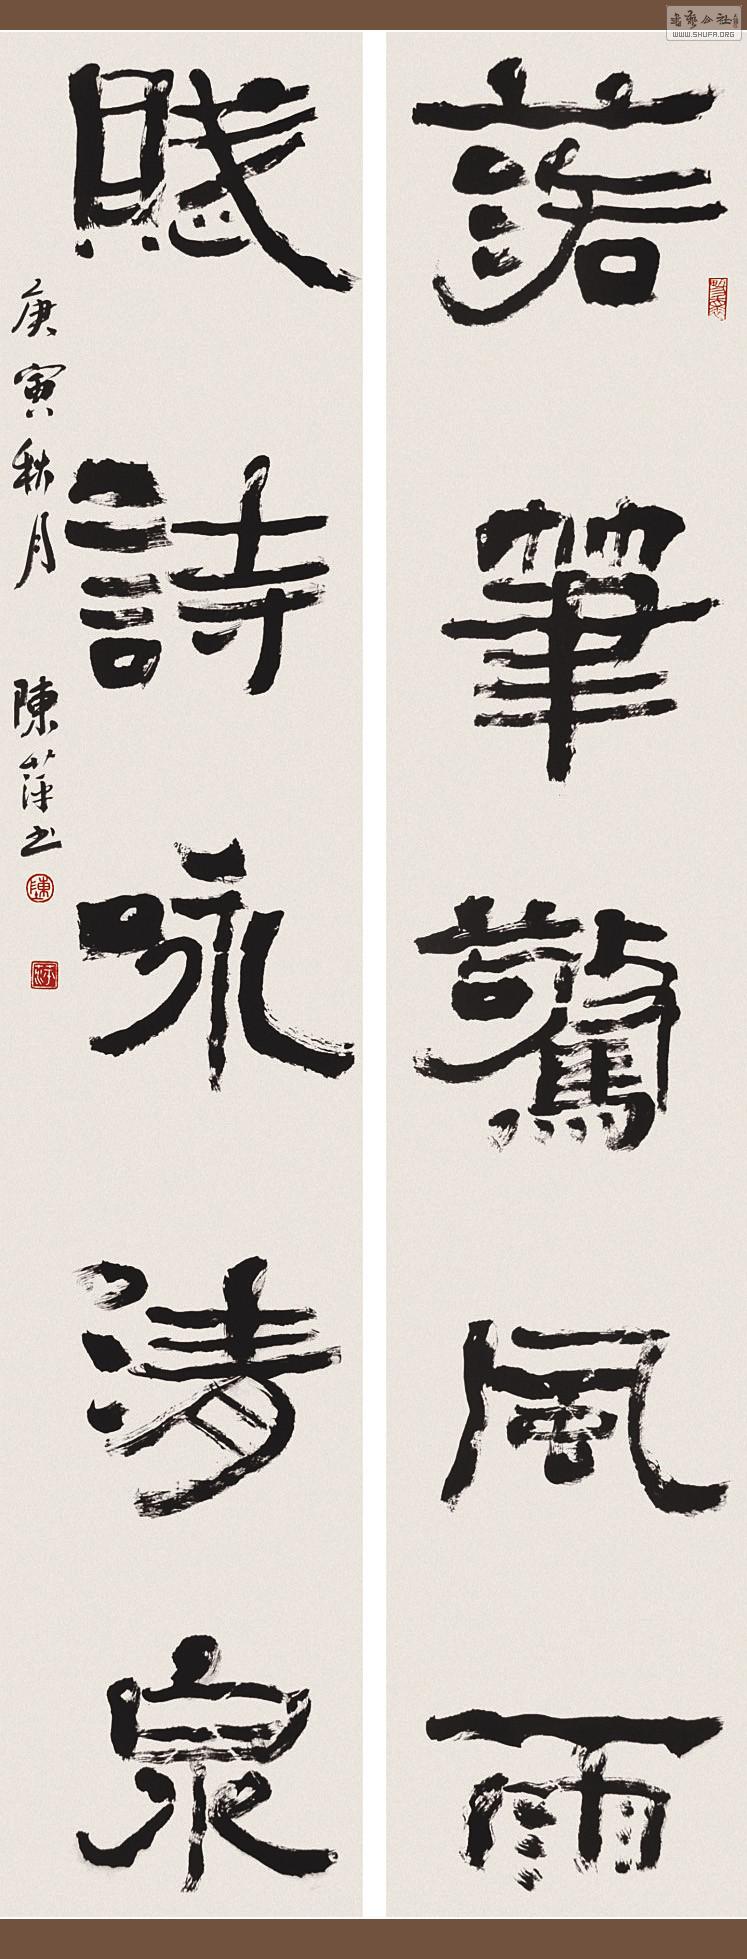 落筆驚風雨
賦詩咏清泉
庚寅秋月 陳萍书
書藝公社
WWW.SHUFA.ORG